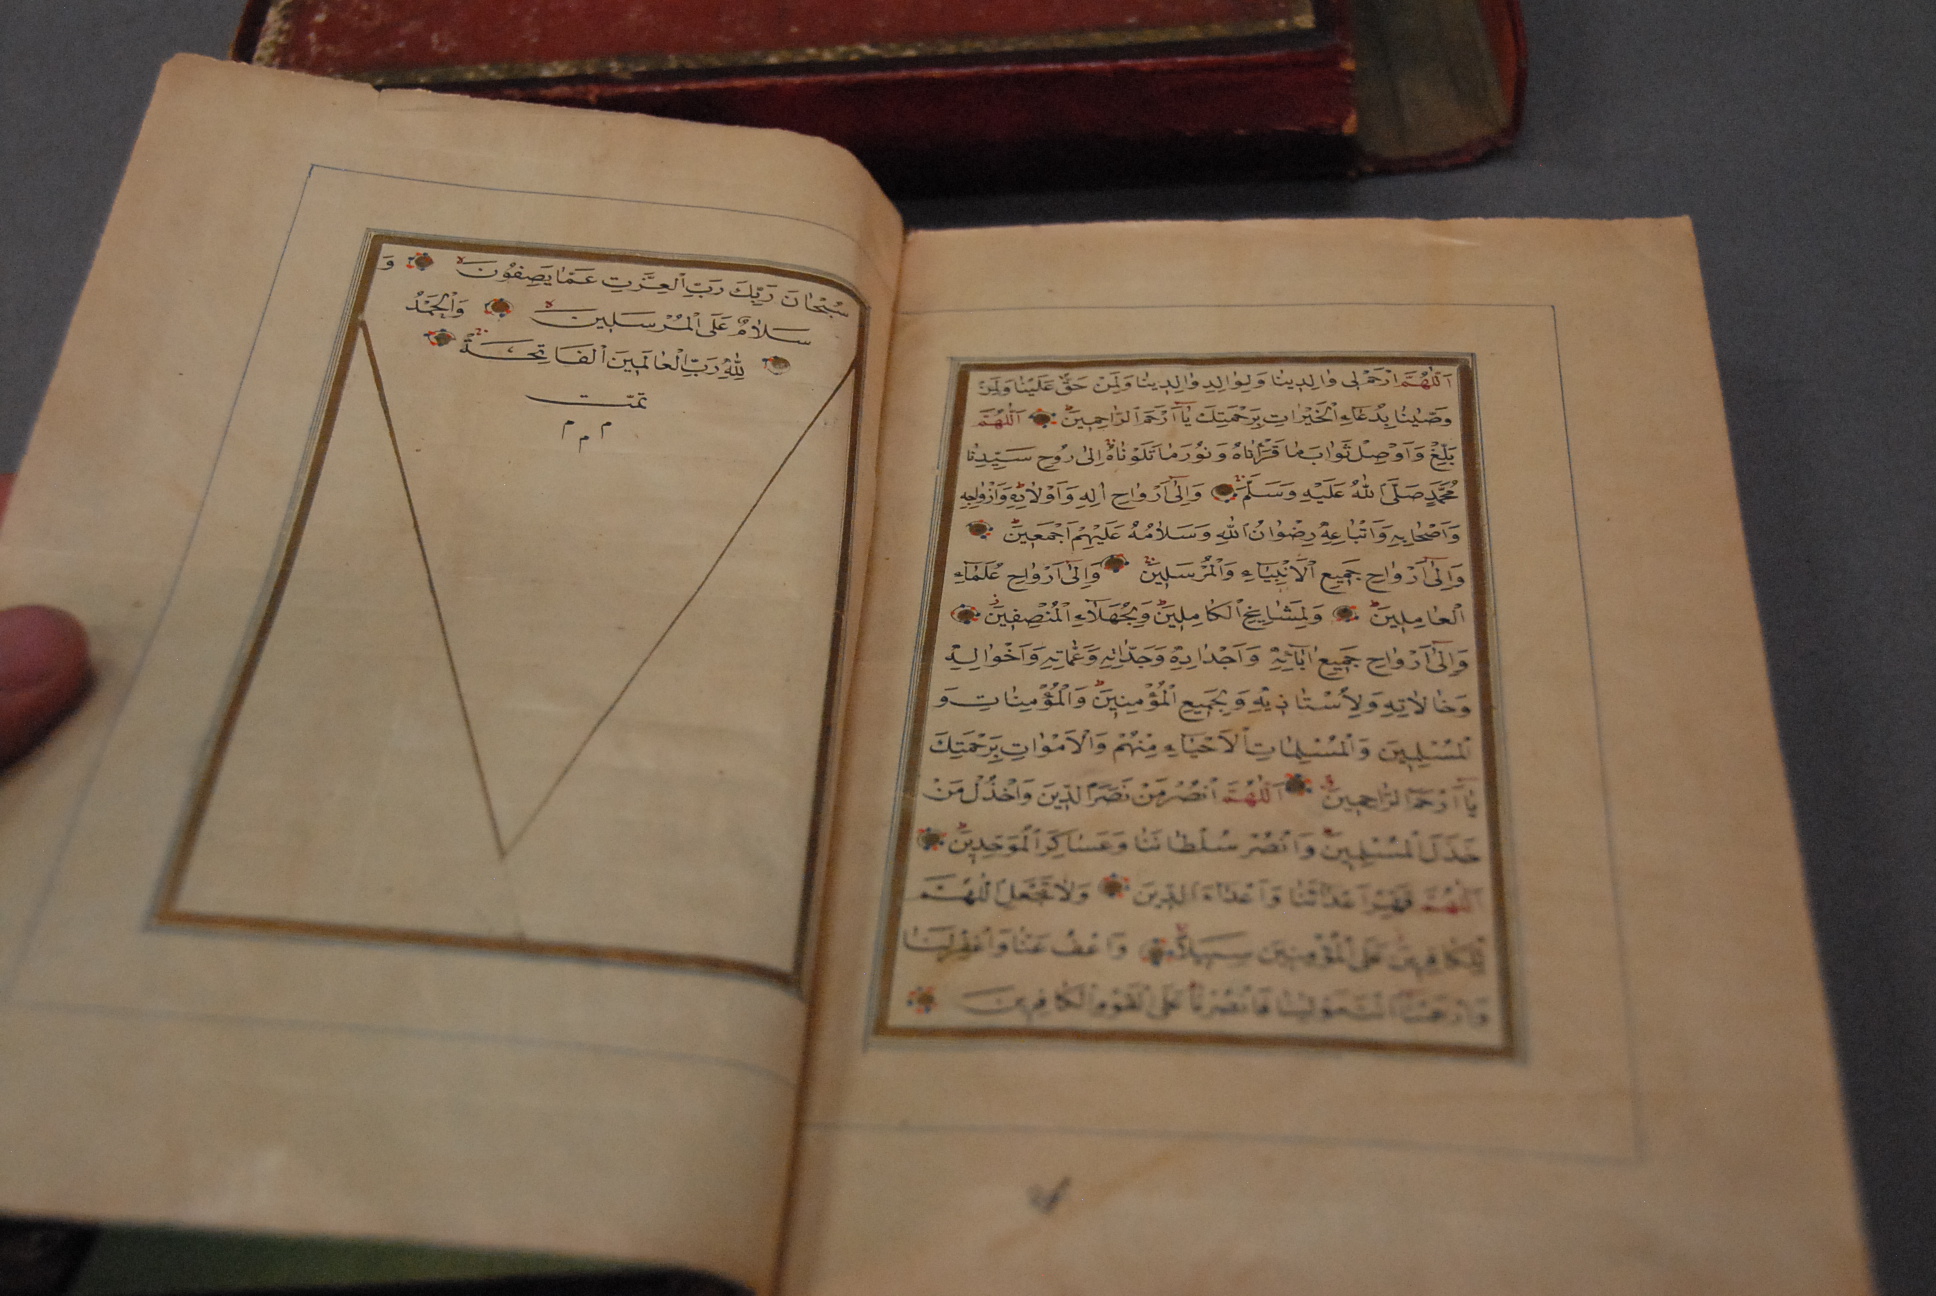 اَللّٰهُمَّ ارْحَمْ لِى وَالِدِينَا وَلِوَالِدِ وَالِدِينَا وَلِمَنْ حَقَّ عَلَيْنَا وَلِمَنْ
وَصّٰينَا بِدُعَاءِ الْخَيْرَاتِ بِرَحْمَتِكَ يَا اَرْحَمَ الرَّاحِمِينَ اَللّٰهُمَّ
بَلِّغْ وَاَوْصِلْ ثَوَابَ مَا قَرَأْنَاهُ وَنُورَ مَا تَلَوْنَاهُ اِلٰى رُوحِ سَيِّدِنَا
مُحَمَّدٍ صَلَّى اللهُ عَلَيْهِ وَسَلَّمَ وَاِلٰى اَرْوَاحِ اٰلِهِ وَاَوْلَادِهِ وَاَزْوَاجِهِ
وَاَصْحَابِهِ وَاَتْبَاعِهِ رِضْوَانُ اللهِ وَسَلَامُهُ عَلَيْهِمْ اَجْمَعِينَ
وَاِلٰى اَرْوَاحِ جَمِيعِ الْاَنْبِيَاءِ وَالْمُرْسَلِينَ وَاِلٰى اَرْوَاحِ عُلَمَاءِ
الْعَامِلِينَ وَلِمَشَايِخِ الْكَامِلِينَ وَبِجُهَلَاءِ الْمُنْصِفِينَ
وَاِلٰى اَرْوَاحِ جَمِيعِ اٰبَائِهِ وَاَجْدَادِهِ وَجَدَّاتِهِ وَعَمَّاتِهِ وَاَخْوَالِهِ
وَخَالَاتِهِ وَلِاُسْتَاذِيهِ وَبِجَمِيعِ الْمُؤْمِنِينَ وَالْمُؤْمِنَاتِ وَ
الْمُسْلِمِينَ وَالْمُسْلِمَاتِ الْاَحْيَاءِ مِنْهُمْ وَالْاَمْوَاتِ بِرَحْمَتِكَ
يَا اَرْحَمَ الرَّاحِمِينَ اَللّٰهُمَّ انْصُرْ مَنْ نَصَرَ الدِّينَ وَاخْذُلْ مَنْ
خَذَلَ الْمُسْلِمِينَ وَانْصُرْ سُلْطَانَنَا وَعَسَاكِرَ الْمُوَحِّدِينَ
اَللّٰهُمَّ قَهِّرْ اَعْدَائَنَا وَاَعْدَاءَ الدِّينَ وَلَا تَجْعَلِ اللّٰهُمَّ
لِلْكَافِرِينَ عَلَى الْمُؤْمِنِينَ سَبِيلًا وَاعْفُ عَنَّا وَاغْفِرْ لَنَا
وَارْحَمْنَا اَنْتَ مَوْلٰينَا فَانْصُرْنَا عَلَى الْقَوْمِ الْكَافِرِينَ
سُبْحَانَ رَبِّكَ رَبِّ الْعِزَّتِ عَمَّا يَصِفُونَ وَ
سَلَامٌ عَلَى الْمُرْسَلِينَ وَالْحَمْدُ
لِلّٰهِ رَبِّ الْعَالَمِينَ اَلْفَاتِحَةُ
تمت
م م م